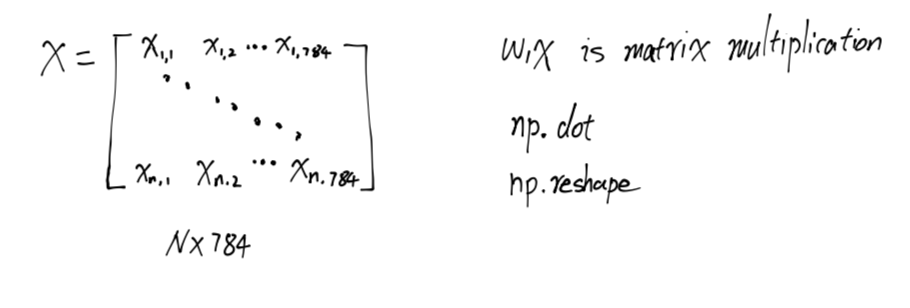 X = [ x1,1 x1,2 ... x1,784
xn,1 xn.2 ... xn.784 ]
N×784
W1X is matrix multiplication
np.dot
np.reshape